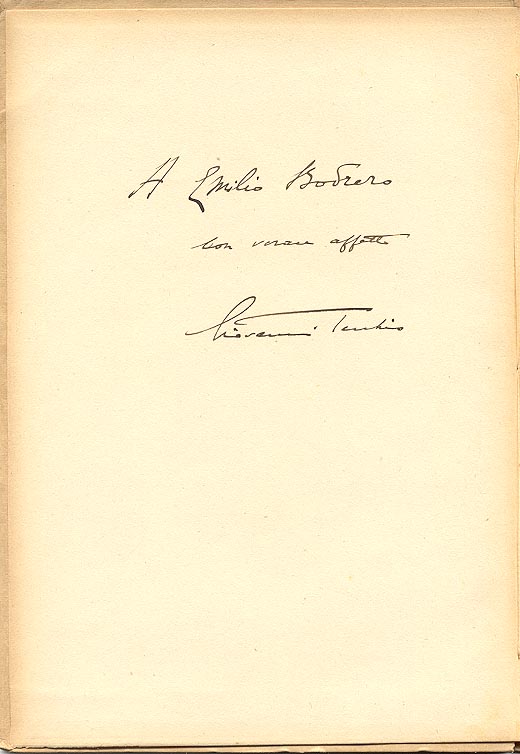 A Emilio Bodrero
con verace affetto
Giovanni